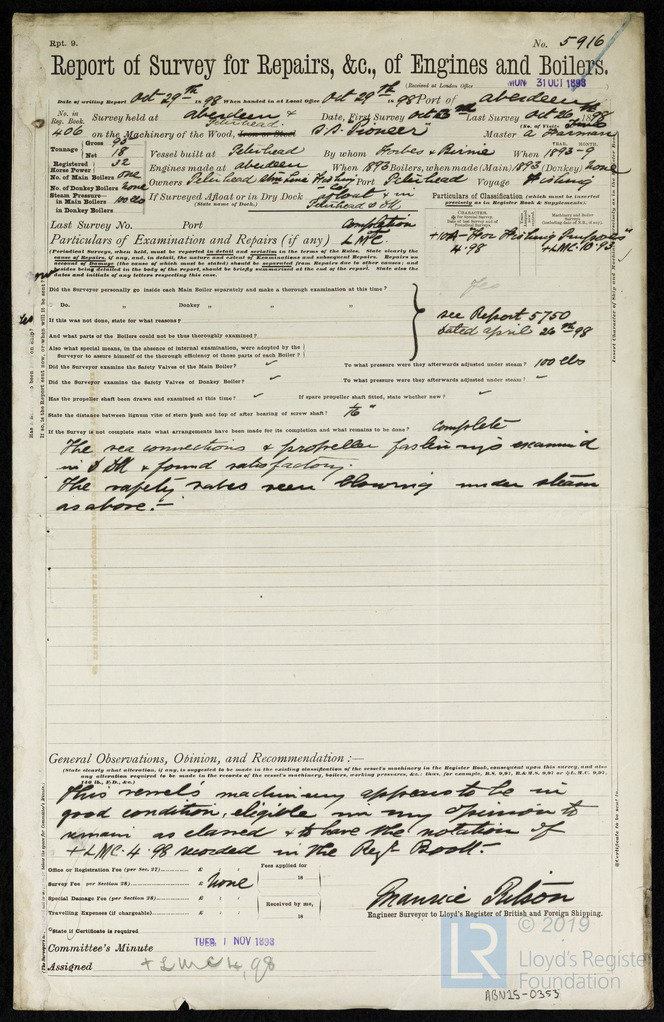 Rpt. 9.
No. 5916
Report of Survey for Repairs, &c., of Engines and Boilers.
(Received at London Office MON. 31 OCT 1898
Date of writing Report Oct 29th 1898 When handed in at Local Office Oct 29th 1898 Port of Aberdeen
No. in Reg. Book. Survey held at Aberdeen & Peterhead. Date, First Survey Oct 23rd Last Survey Oct 26th 1898
(No. of Visits
406 on the Machinery of the Wood, Iron or Steel S.S. "Pioneer" Master A
Tonnage Gross 93
Net 18
Vessel built at Peterhead By whom Forbes & Birnie When 1893-9
YEAR. MONTH.
Registered Horse Power 32
Engines made at Aberdeen When 1893 Boilers, when made (Main) 1893 (Donkey) None
No. of Main Boilers One
Owners Peterhead Steam Line Fishing Co Port Peterhead Voyage Fishing
No. of Donkey Boilers None
Steam Pressure— in Main Boilers 100 lbs
in Donkey Boilers
If Surveyed Afloat or in Dry Dock afloat & in Peterhead D Dk
(State name of Dock.)
Particulars of Classification (which must be inserted precisely as in Register Book & Supplements).
Last Survey No. Port
Particulars of Examination and Repairs (if any) Completion LMC
+10A— For Fishing Purposes
4.98 +LMC.10.93
Did the Surveyor personally go inside each Main Boiler separately and make a thorough examination at this time?
Do. „ Donkey „ „ „
If this was not done, state for what reasons?
And what parts of the Boilers could not be thus thoroughly examined?
Yes
see Report 5750
Dated April 26th 98
Also what special means, in the absence of internal examination, were adopted by the
Surveyor to assure himself of the thorough efficiency of those parts of each Boiler?
Did the Surveyor examine the Safety Valves of the Main Boiler? To what pressure were they afterwards adjusted under steam? 100 lbs
Did the Surveyor examine the Safety Valves of Donkey Boiler? To what pressure were they afterwards adjusted under steam?
Has the propeller shaft been drawn and examined at this time? If spare propeller shaft fitted, state whether new?
State the distance between lignum vitæ of stern bush and top of after bearing of screw shaft?
If the Survey is not complete state what arrangements have been made for its completion and what remains to be done? Complete
The sea connections & propeller fastenings examined
in D Dk & found satisfactory.
The safety valves seen blowing under steam
as above.—
General Observations, Opinion, and Recommendation:—
(State clearly what alteration, if any, is suggested to be made in the existing classification of the vessel's machinery in the Register Book, consequent upon this survey, and also
any alteration required to be made in the records of the vessel's machinery, boilers, working pressure, &c.: thus, for example, B.S. 9,97, B.&M.S. 9,97 or L.M.C. 9,97,
140 lb., F.D., &c.)
This vessel's machinery appears to be in
good condition, eligible in my opinion to
remain as classed & to have the notation of
+LMC. 4.98 recorded in the Reg. Book.
Office or Registration Fee (per Sec. 27)... £ : :
Fees applied for 18
Survey Fee (per Section 28)... £ None
Special Damage Fee (per Section 28)... £ : :
Received by me, 18
Travelling Expenses (if chargeable)... £ : :
State if Certificate is required.
Engineer Surveyor to Lloyd's Register of British and Foreign Shipping.
Committee's Minute TUES. 1 NOV 1898
Assigned + LMC 4,98
© 2019
LR Lloyd's Register Foundation
ABN15-0353